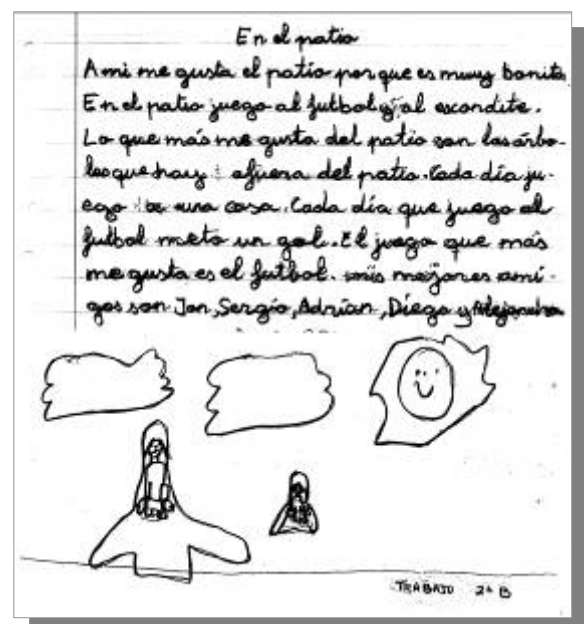 En el patio
A mi me gusta el patio por que es muuy bonito
En el patio juego al futbol y al escondite.
Lo que más me gusta del patio son los árbo-
les que hay afuera del patio. Cada día ju-
ego a una cosa. Cada día que juego al
futbol meto un gol. El juego que más
me gusta es el futbol. mis mejores ami-
gos son Jon, Sergio, Adrían, Diego y Alejandro
TRABAJO 2º B